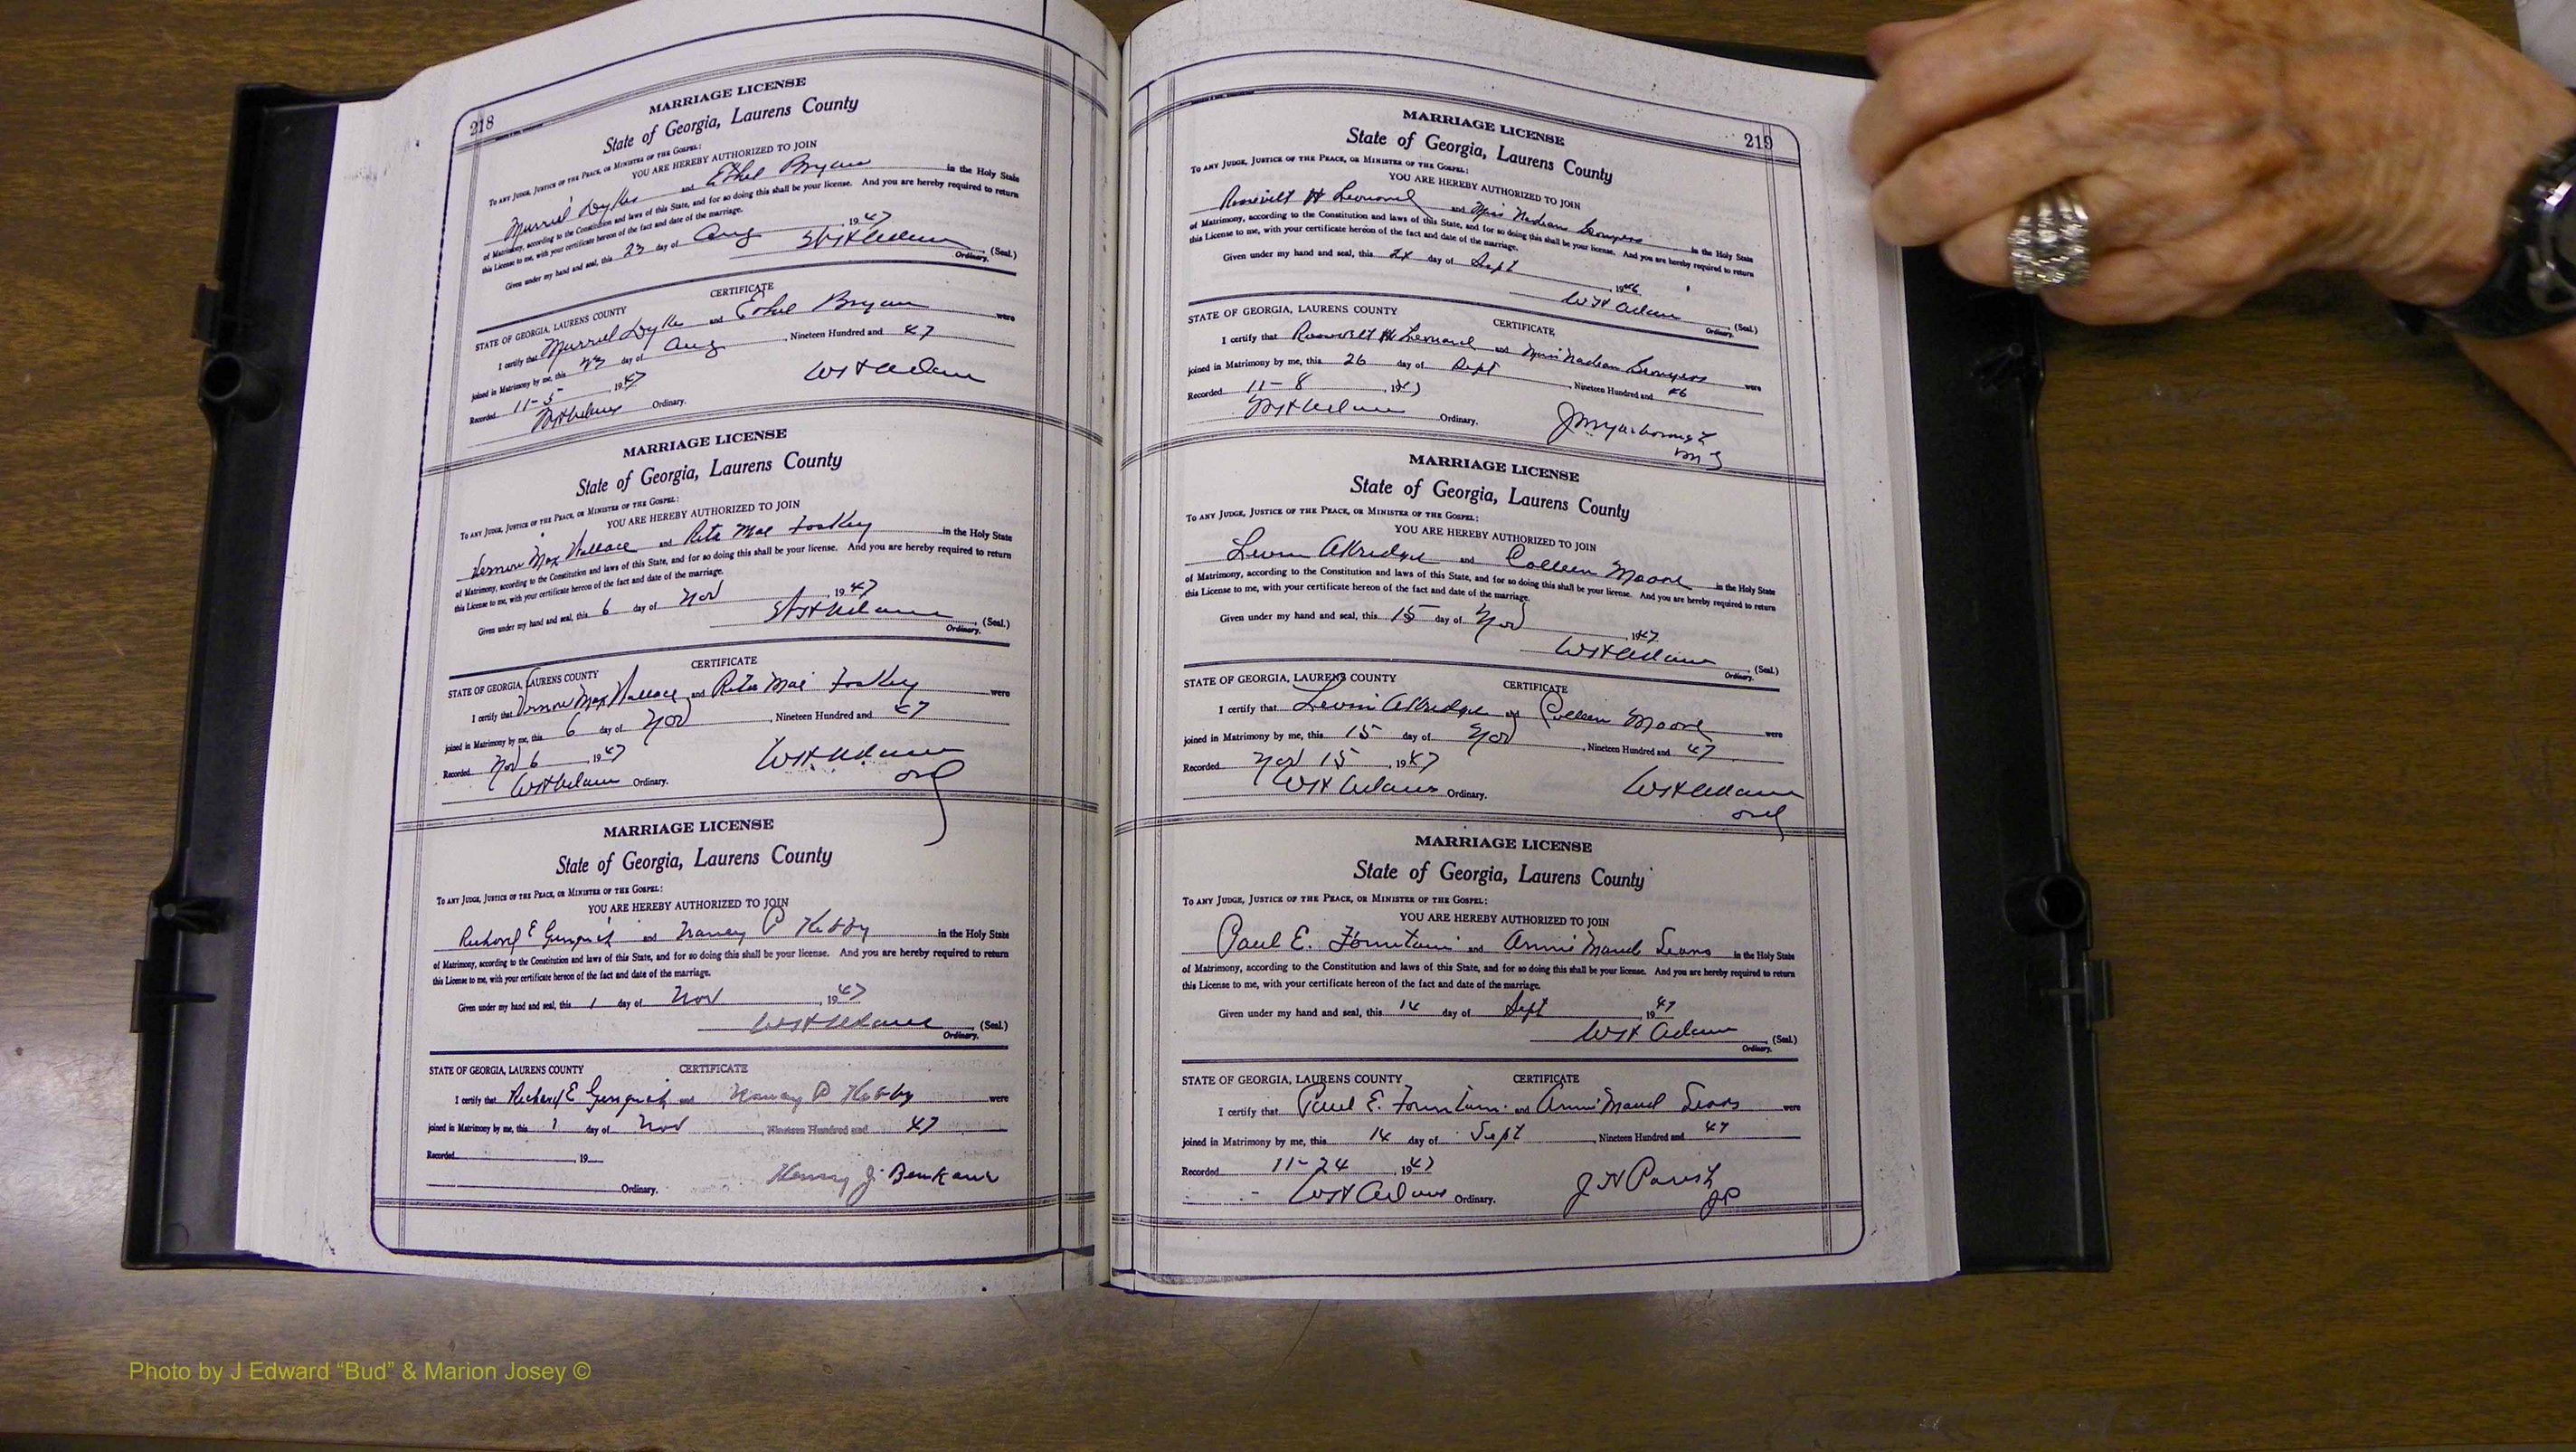 218
MARRIAGE LICENSE
State of Georgia, Laurens County
To any Judge, Justice of the Peace, or Minister of the Gospel:
YOU ARE HEREBY AUTHORIZED TO JOIN
Dykes and Ethel Bryan in the Holy State
of Matrimony, according to the Constitution and laws of this State, and for so doing this shall be your license. And you are hereby required to return
this License to me, with your certificate hereon of the fact and date of the marriage.
Given under my hand and seal, this 23 day of Aug 1947
(Seal.)
Ordinary.
CERTIFICATE
STATE OF GEORGIA, LAURENS COUNTY
I certify that Dykes and Ethel Bryan were
joined in Matrimony by me, this 23 day of Aug, Nineteen Hundred and 47
Recorded 11-5, 1947 WH Adams
WH Adams Ordinary.
MARRIAGE LICENSE
State of Georgia, Laurens County
To any Judge, Justice of the Peace, or Minister of the Gospel:
YOU ARE HEREBY AUTHORIZED TO JOIN
Vernon Max Wallace and Rita Mae Foskey in the Holy State
of Matrimony, according to the Constitution and laws of this State, and for so doing this shall be your license. And you are hereby required to return
this License to me, with your certificate hereon of the fact and date of the marriage.
Given under my hand and seal, this 6 day of Nov, 1947
WH Adams (Seal.)
Ordinary.
CERTIFICATE
STATE OF GEORGIA, LAURENS COUNTY
I certify that Vernon Max Wallace and Rita Mae Foskey were
joined in Matrimony by me, this 6 day of Nov, Nineteen Hundred and 47
Recorded Nov 6, 1947 WH Adams
WH Adams Ordinary. ord
MARRIAGE LICENSE
State of Georgia, Laurens County
To any Judge, Justice of the Peace, or Minister of the Gospel:
YOU ARE HEREBY AUTHORIZED TO JOIN
Richard E and Nancy P in the Holy State
of Matrimony, according to the Constitution and laws of this State, and for so doing this shall be your license. And you are hereby required to return
this License to me, with your certificate hereon of the fact and date of the marriage.
Given under my hand and seal, this 1 day of Nov, 1947
WH Adams (Seal.)
Ordinary.
STATE OF GEORGIA, LAURENS COUNTY CERTIFICATE
I certify that Richard E and Nancy P were
joined in Matrimony by me, this 1 day of Nov, Nineteen Hundred and 47
Recorded , 19
Ordinary. Henry J.
219
MARRIAGE LICENSE
State of Georgia, Laurens County
To any Judge, Justice of the Peace, or Minister of the Gospel:
YOU ARE HEREBY AUTHORIZED TO JOIN
Roosevelt H Leonard and Miss Nadean in the Holy State
of Matrimony, according to the Constitution and laws of this State, and for so doing this shall be your license. And you are hereby required to return
this License to me, with your certificate hereon of the fact and date of the marriage.
Given under my hand and seal, this day of Sept, 1946
WH Adams (Seal.)
Ordinary.
STATE OF GEORGIA, LAURENS COUNTY CERTIFICATE
I certify that Roosevelt H Leonard and Miss Nadean were
joined in Matrimony by me, this 26 day of Sept, Nineteen Hundred and 46
Recorded 11-8, 1947
WH Adams Ordinary. J M Yarborough
MG
MARRIAGE LICENSE
State of Georgia, Laurens County
To any Judge, Justice of the Peace, or Minister of the Gospel:
YOU ARE HEREBY AUTHORIZED TO JOIN
Akridge and Colleen Moore in the Holy State
of Matrimony, according to the Constitution and laws of this State, and for so doing this shall be your license. And you are hereby required to return
this License to me, with your certificate hereon of the fact and date of the marriage.
Given under my hand and seal, this 15 day of Nov, 1947
WH Adams (Seal.)
Ordinary.
STATE OF GEORGIA, LAURENS COUNTY CERTIFICATE
I certify that Akridge and Colleen Moore were
joined in Matrimony by me, this 15 day of Nov, Nineteen Hundred and 47
Recorded Nov 15, 1947
WH Adams Ordinary. WH Adams
ord
MARRIAGE LICENSE
State of Georgia, Laurens County
To any Judge, Justice of the Peace, or Minister of the Gospel:
YOU ARE HEREBY AUTHORIZED TO JOIN
Paul E. Fountain and Annie Maud Sears in the Holy State
of Matrimony, according to the Constitution and laws of this State, and for so doing this shall be your license. And you are hereby required to return
this License to me, with your certificate hereon of the fact and date of the marriage.
Given under my hand and seal, this 14 day of Sept, 1947
WH Adams (Seal.)
Ordinary.
STATE OF GEORGIA, LAURENS COUNTY CERTIFICATE
I certify that Paul E. Fountain and Annie Maud Sears were
joined in Matrimony by me, this 14 day of Sept, Nineteen Hundred and 47
Recorded 11-24, 1947
WH Adams Ordinary. J H Parish
JP
Photo by J Edward “Bud” & Marion Josey ©